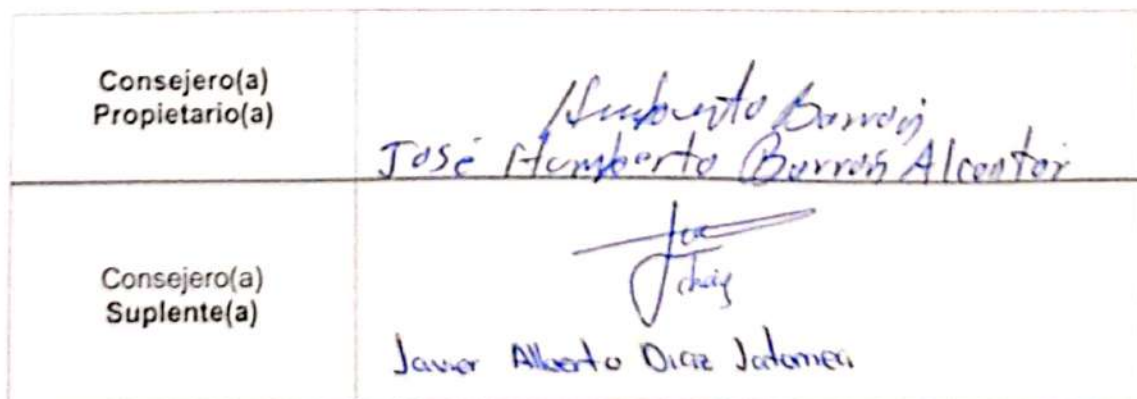 Consejero(a)
Propietario(a)
Humberto Barrón
José Humberto Barrón Alcantar
Consejero(a)
Suplente(a)
Javier Alberto Diaz